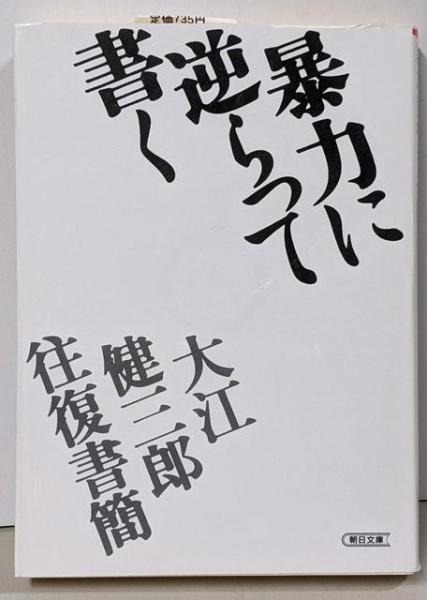 定価735円
暴力に
逆らって
書く
大江
健三郎
往復書簡
朝日文庫